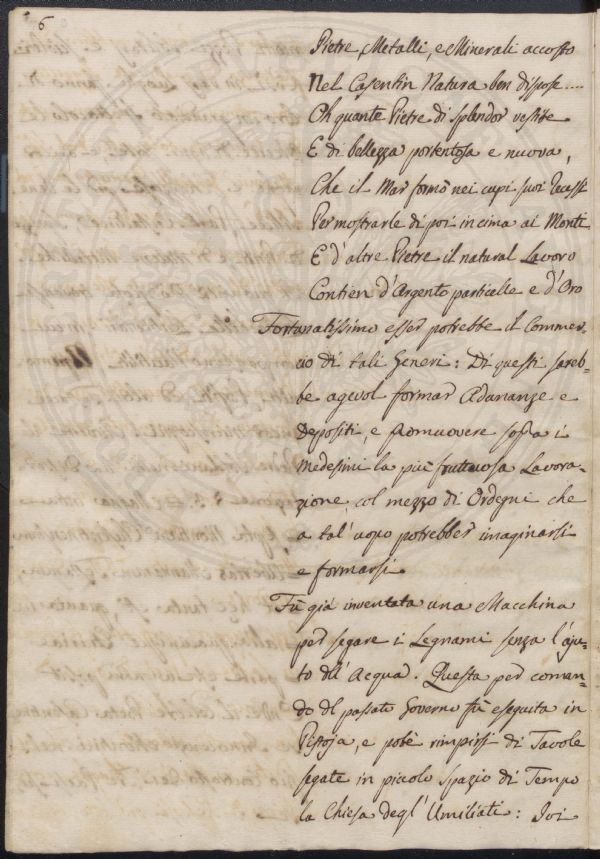 6
Pietre, Metalli, e Minerali accosto
Nel Casentin Natura ben dispose....
Oh quante Pietre di splendor vestite
E di bellezza portentosa e nuova,
Che il Mar formò nei cupi suoi recessi
Per mostrarle di poi in cima ai Monti
E d'altre Pietre il natural Lavoro
Contien d'Argento particelle e d'Oro
Fortunatissimo esser potrebbe il Commer-
cio di tali Generi: Di questi sareb-
be agevol formar Adunanze e
Depositi, e promuovere sopra i
Medesimi la più fruttuosa Lavora-
zione, col mezzo di Ordegni che
a tal'uopo potrebber imaginarsi
e formarsi.
Fù già inventata una Macchina
per segare i Legnami senza l'aju-
to dell'Acqua. Questa per coman-
do del passato Governo fù eseguita in
Pistoja, e potè riempirsi di Tavole
segate in piccolo spazio di Tempo
la Chiesa degl'Umiliati: Ivi